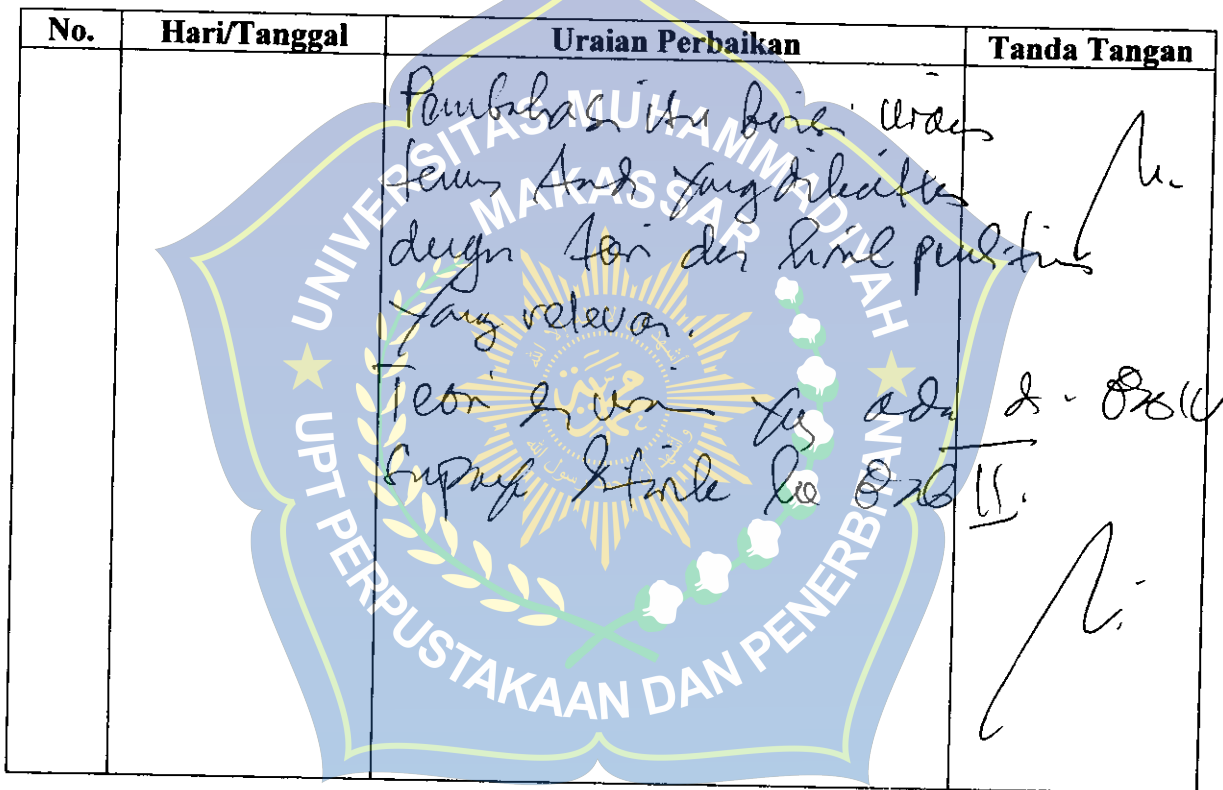 No. Hari/Tanggal Uraian Perbaikan Tanda Tangan
Pembahasan itu berisi uraian
temuan Anda yang dikaitkan
dengan teori dan hasil penelitian
yang relevan.
Teori yang ada di Bab IV
supaya ditarik ke Bab II.
UNIVERSITAS MUHAMMADIYAH
MAKASSAR
UPT PERPUSTAKAAN DAN PENERBITAN